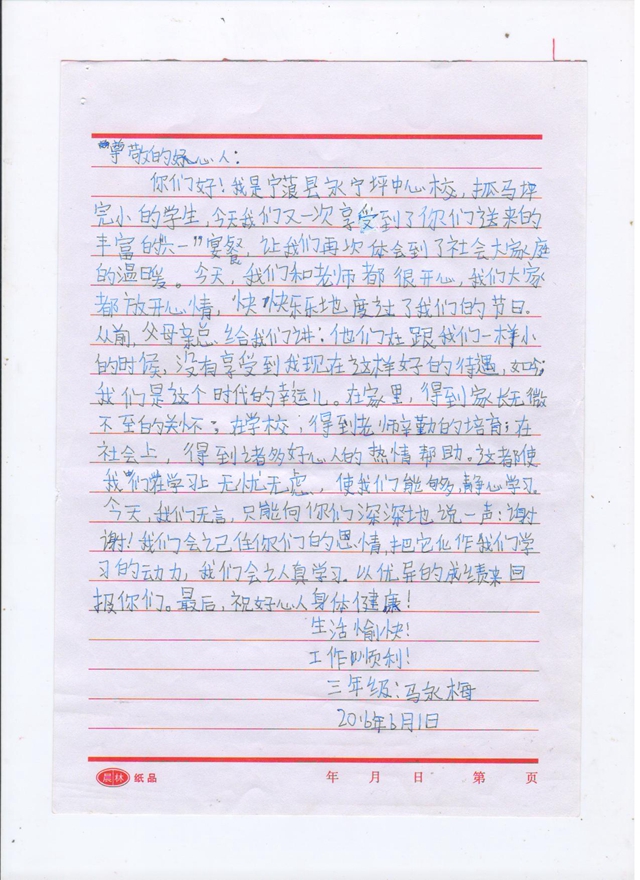 尊敬的好心人：
你们好！我是宁蒗县永宁坪中心校，拉马坪
完小的学生，今天我们又一次享受到了你们送来的
丰富的"六一"宴餐，让我们再次体会到了社会大家庭
的温暖。今天，我们和老师都很开心，我们大家
都放开心情，快快乐乐地度过了我们的节日。
从前，父母亲总给我们讲：他们在跟我们一样小
的时候，没有享受到我现在这样好的待遇，如今
我们是这个时代的幸运儿。在家里，得到家长无微
不至的关怀；在学校；得到老师辛勤的培育；在
社会上，得到诸多好心人的热情帮助。这都使
我们在学习上无忧无虑，使我们能够静心学习。
今天，我们无言，只能向你们深深地说一声：谢
谢！我们会记住你们的恩情，把它化作我们学
习的动力，我们会认真学习。以优异的成绩来回
报你们。最后，祝好心人身体健康！
生活愉快！
工作顺利！
三年级：马永梅
2016年6月1日
晨林 纸品 年 月 日 第 页